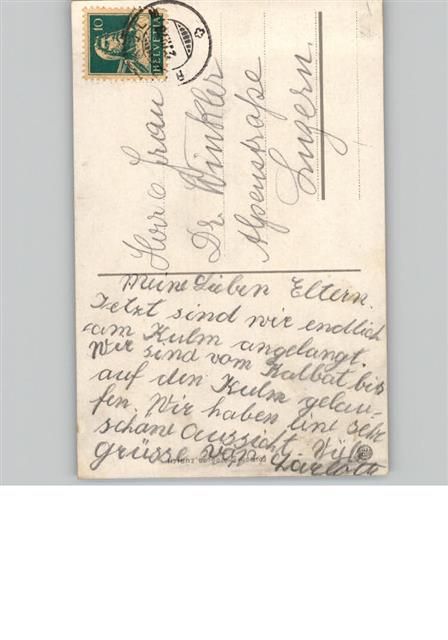 10
HELVETIA
Herr & Frau
Dr. Winkler
Alpenstraße
Luzern.
Meine Lieben Eltern.
Jetzt sind wir endlich
am Kulm angelangt
Wir sind vom Kaltbat bis
auf den Kulm gelau-
fen. Wir haben eine sehr
schöne Aussicht. Viele
grüsse von Charlotte